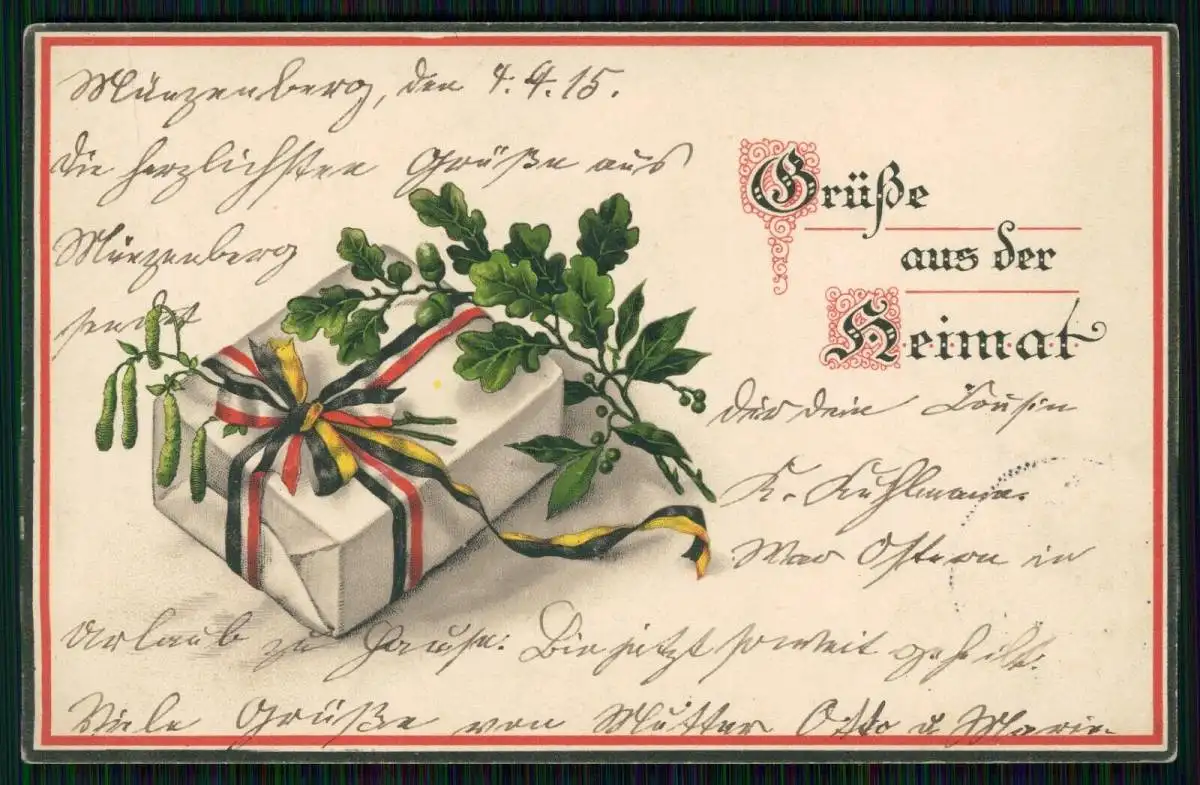 Münzenberg, den 7.4.15.
Die herzlichsten Grüße aus
Münzenberg
sendet
Grüße
aus der
Heimat
Dir dein Cousin
K. Kuhlmann.
War Ostern in
Urlaub zu Hause. Bin jetzt soweit geheilt.
Viele Grüße von Mutter Otto u Marie.